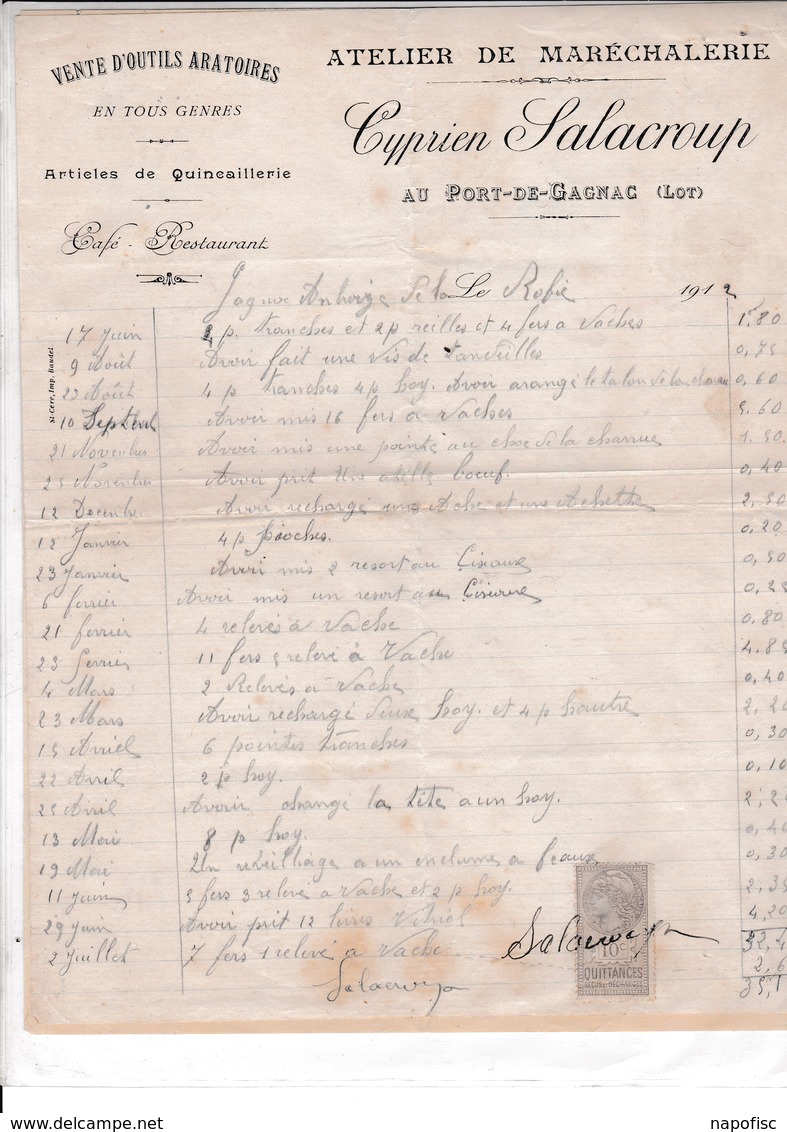 VENTE D'OUTILS ARATOIRES
EN TOUS GENRES
Articles de Quincaillerie
Café - Restaurant
ATELIER DE MARÉCHALERIE
Cyprien Salacroup
AU PORT-DE-GAGNAC (LOT)
St-Céré, Imp. Baudel
de la Le 1912
17 Juin 2 p. tranches et 2 p reilles et 4 fers a vaches 1.80
9 Août Avoir fait une vis de 0,75
22 Août 4 p tranches 4 p hoy. Avoir arangé le talon de la charau 0,60
10 Septembre Avoir mis 16 fers a vaches 5.60
21 Novembre Avoir mis une pointe au de la charrue 1.50
25 Novembre Avoir prit une boeuf. 0,40
12 Decembre Avoir rechargé une Ache et une Achette 2,50
12 Janvier 4 p pioches. 0,20
23 Janvier Avoir mis 2 resort au Ciseaux 0,50
6 fevrier Avoir mis un resort au Ciseaux 0,25
21 fevrier 4 relevés a vache 0,80
23 fevrier 11 fers 5 relevé a vache 4.85
4 Mars 2 Relevés a vache 0,40
23 Mars Avoir rechargé deux hoy. et 4 p hautre 2,20
15 Avril 6 pointes tranches 0,30
22 Avril 2 p hoy. 0,10
25 Avril Avoir changé la tête a un hoy. 2,2
13 Mai 8 p hoy. 0,40
19 Mai Un a un enclume a feaux 0,30
11 Juin 5 fers 3 relevé a vache et 2 p hoy. 2,35
29 Juin Avoir prit 12 livres Vitriol 4,20
2 Juillet 7 fers 1 relevé a vache
Salacroup
Salacroup
10c
QUITTANCES
REÇUS ET DÉCHARGES
32,4
2,6
35,1
napofisc